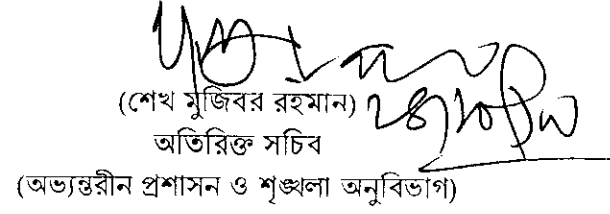 (শেখ মুজিবর রহমান)
অতিরিক্ত সচিব
(অভ্যন্তরীন প্রশাসন ও শৃঙ্খলা অনুবিভাগ)